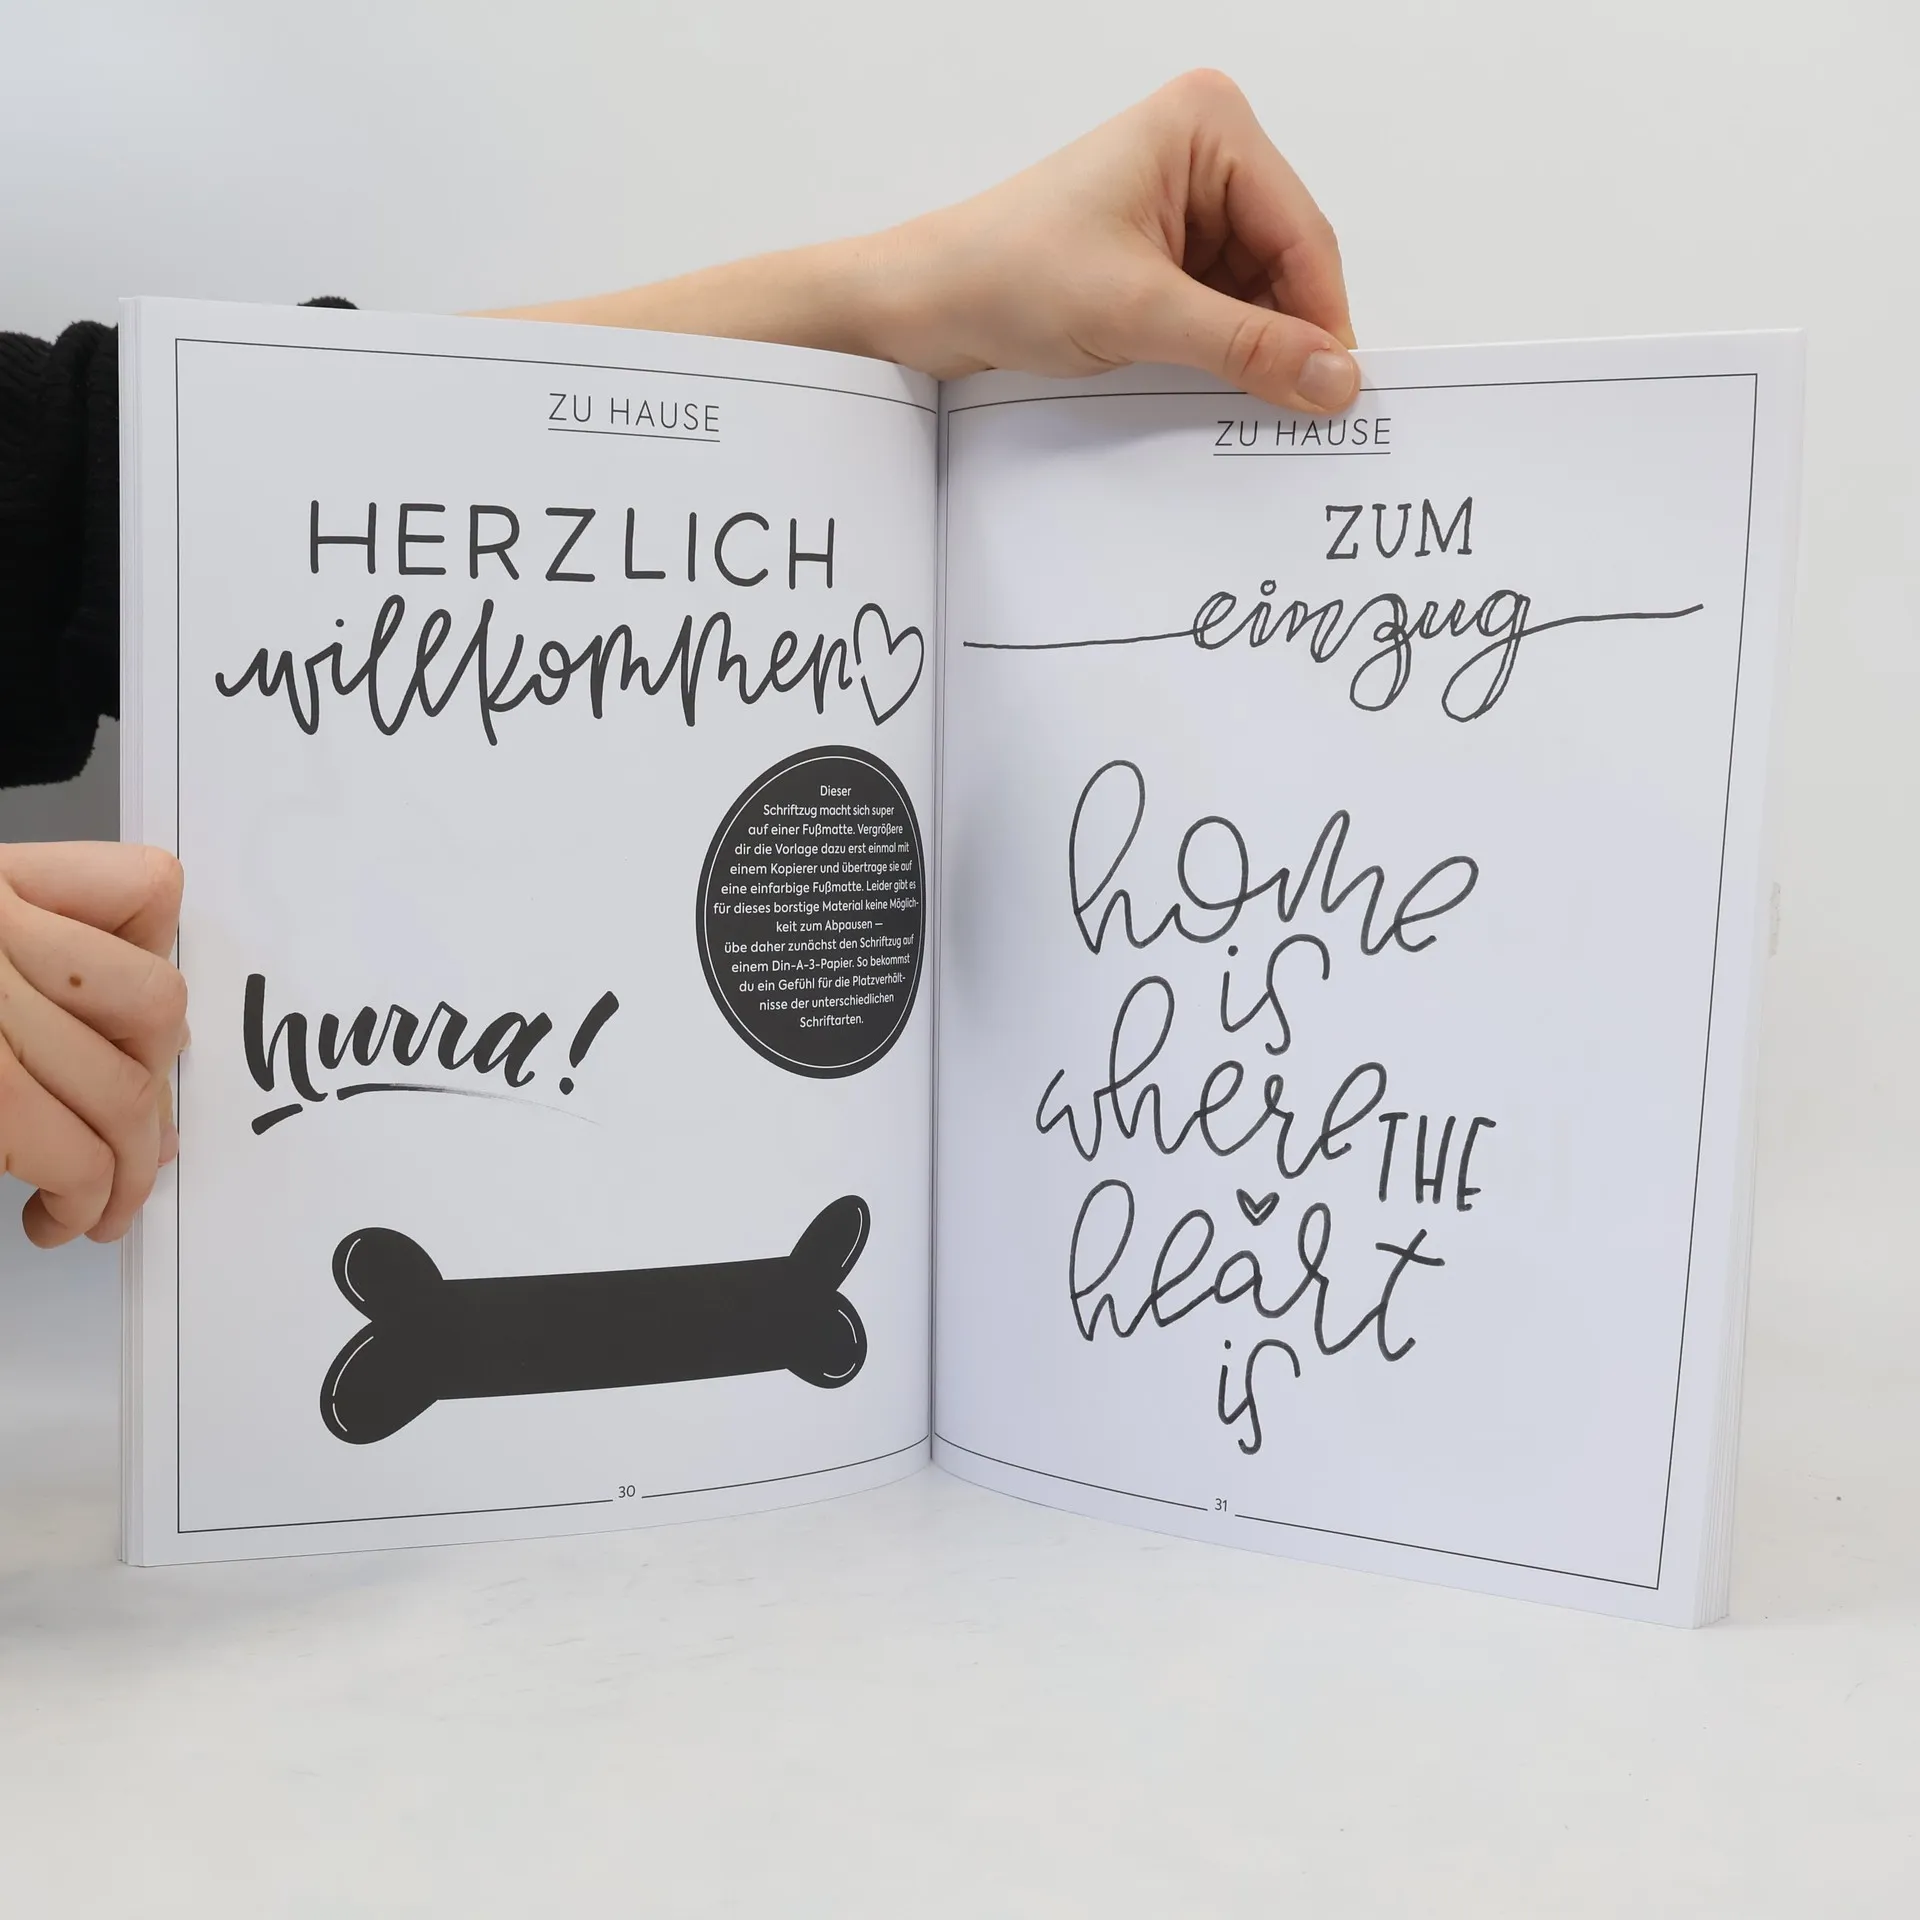 ZU HAUSE
HERZLICH
willkommen
Dieser
Schriftzug macht sich super
auf einer Fußmatte. Vergrößere
dir die Vorlage dazu erst einmal mit
einem Kopierer und übertrage sie auf
eine einfarbige Fußmatte. Leider gibt es
für dieses borstige Material keine Möglich-
keit zum Abpausen —
übe daher zunächst den Schriftzug auf
einem Din-A-3-Papier. So bekommst
du ein Gefühl für die Platzverhält-
nisse der unterschiedlichen
Schriftarten.
hurra!
30
ZU HAUSE
ZUM
einzug
home
is
where THE
heart
is
31